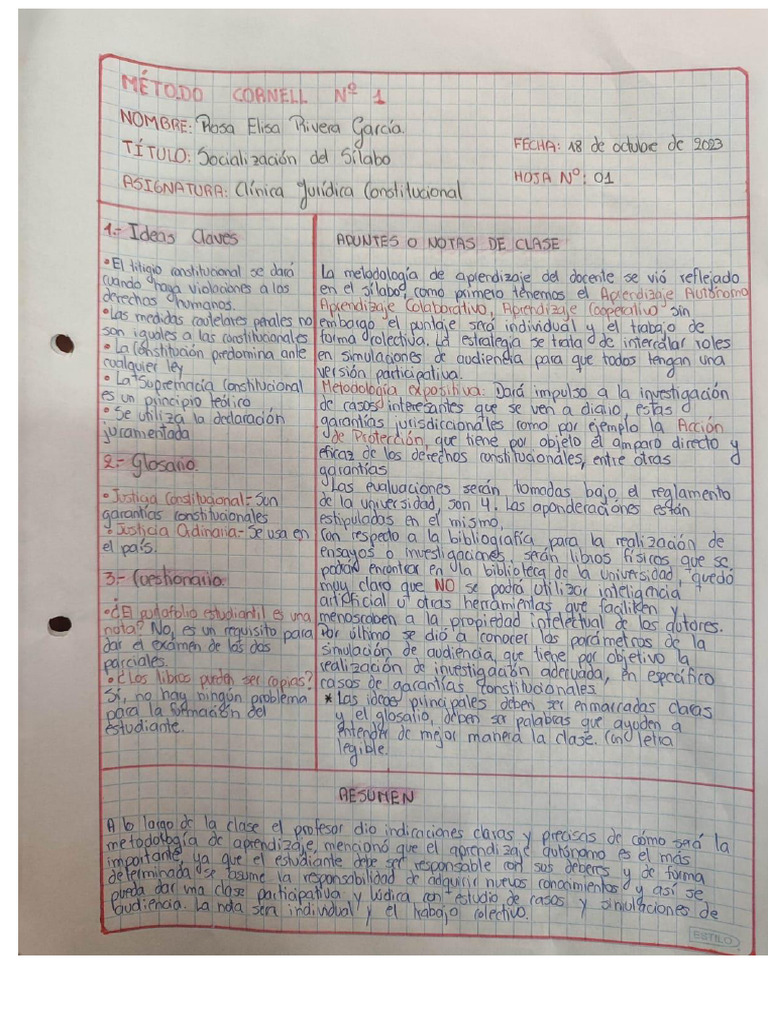 MÉTODO CORNELL Nº 1
NOMBRE: Rosa Elisa Rivera García.
FECHA: 18 de octubre de 2023
TÍTULO: Socialización del Sílabo
HOJA Nº: 01
ASIGNATURA: Clínica Jurídica Constitucional
1.- Ideas Claves
• El litigio constitucional se dará
cuando haya violaciones a los
derechos humanos.
• Las medidas cautelares penales no
son iguales a las constitucionales
• La Constitución predomina ante
cualquier ley
• La Supremacía Constitucional
es un principio teórico
• Se utiliza la declaración
juramentada
2.- Glosario.
• Justicia Constitucional.- Son
garantías constitucionales
• Justicia Ordinaria.- Se usa en
el país.
3.- Cuestionario.
• ¿El portafolio estudiantil es una
nota? No, es un requisito para
dar el exámen de los dos
parciales.
• ¿Los libros pueden ser copias?
Sí, no hay ningún problema
para la formación del
estudiante.
APUNTES O NOTAS DE CLASE
La metodología de aprendizaje del docente se vió reflejado
en el sílabo, como primero tenemos el Aprendizaje Autónomo
Aprendizaje Colaborativo, Aprendizaje Cooperativo sin
embargo el puntaje será individual y el trabajo de
forma colectiva. La estrategia se trata de intercalar roles
en simulaciones de audiencia para que todos tengan una
versión participativa.
Metodología expositiva: Dará impulso a la investigación
de casos interesantes que se ven a diario, estas
garantías jurisdiccionales como por ejemplo la Acción
de Protección, que tiene por objeto el amparo directo y
eficaz de los derechos constitucionales, entre otras
garantías
Las evaluaciones serán tomadas bajo el reglamento
de la universidad, son 4. Las aponderaciones están
estipulados en el mismo.
Con respecto a la bibliografía para la realización de
ensayos o investigaciones, serán libros físicos que se
podrán encontrar en la biblioteca de la universidad, quedó
muy claro que NO se podrá utilizar inteligencia
artificial u otras herramientas que faciliten y
menoscaben a la propiedad intelectual de los autores.
Por último se dió a conocer los parámetros de la
simulación de audiencia, que tiene por objetivo la
realización de investigación adecuada, en específico
casos de garantías constitucionales
* Las ideas principales deben ser enmarcadas claras
y el glosario, deben ser palabras que ayuden a
entender de mejor manera la clase. Con letra
legible.
RESUMEN
A lo largo de la clase el profesor dio indicaciones claras y precisas de cómo será la
metodología de aprendizaje, mencionó que el aprendizaje autónomo es el más
importante, ya que el estudiante debe ser responsable con sus deberes y de forma
determinada se asume la responsabilidad de adquirir nuevos conocimientos y así se
pueda dar una clase participativa y lúdica con estudio de casos y simulaciones de
audiencia. La nota será individual y el trabajo colectivo.
ESTILO